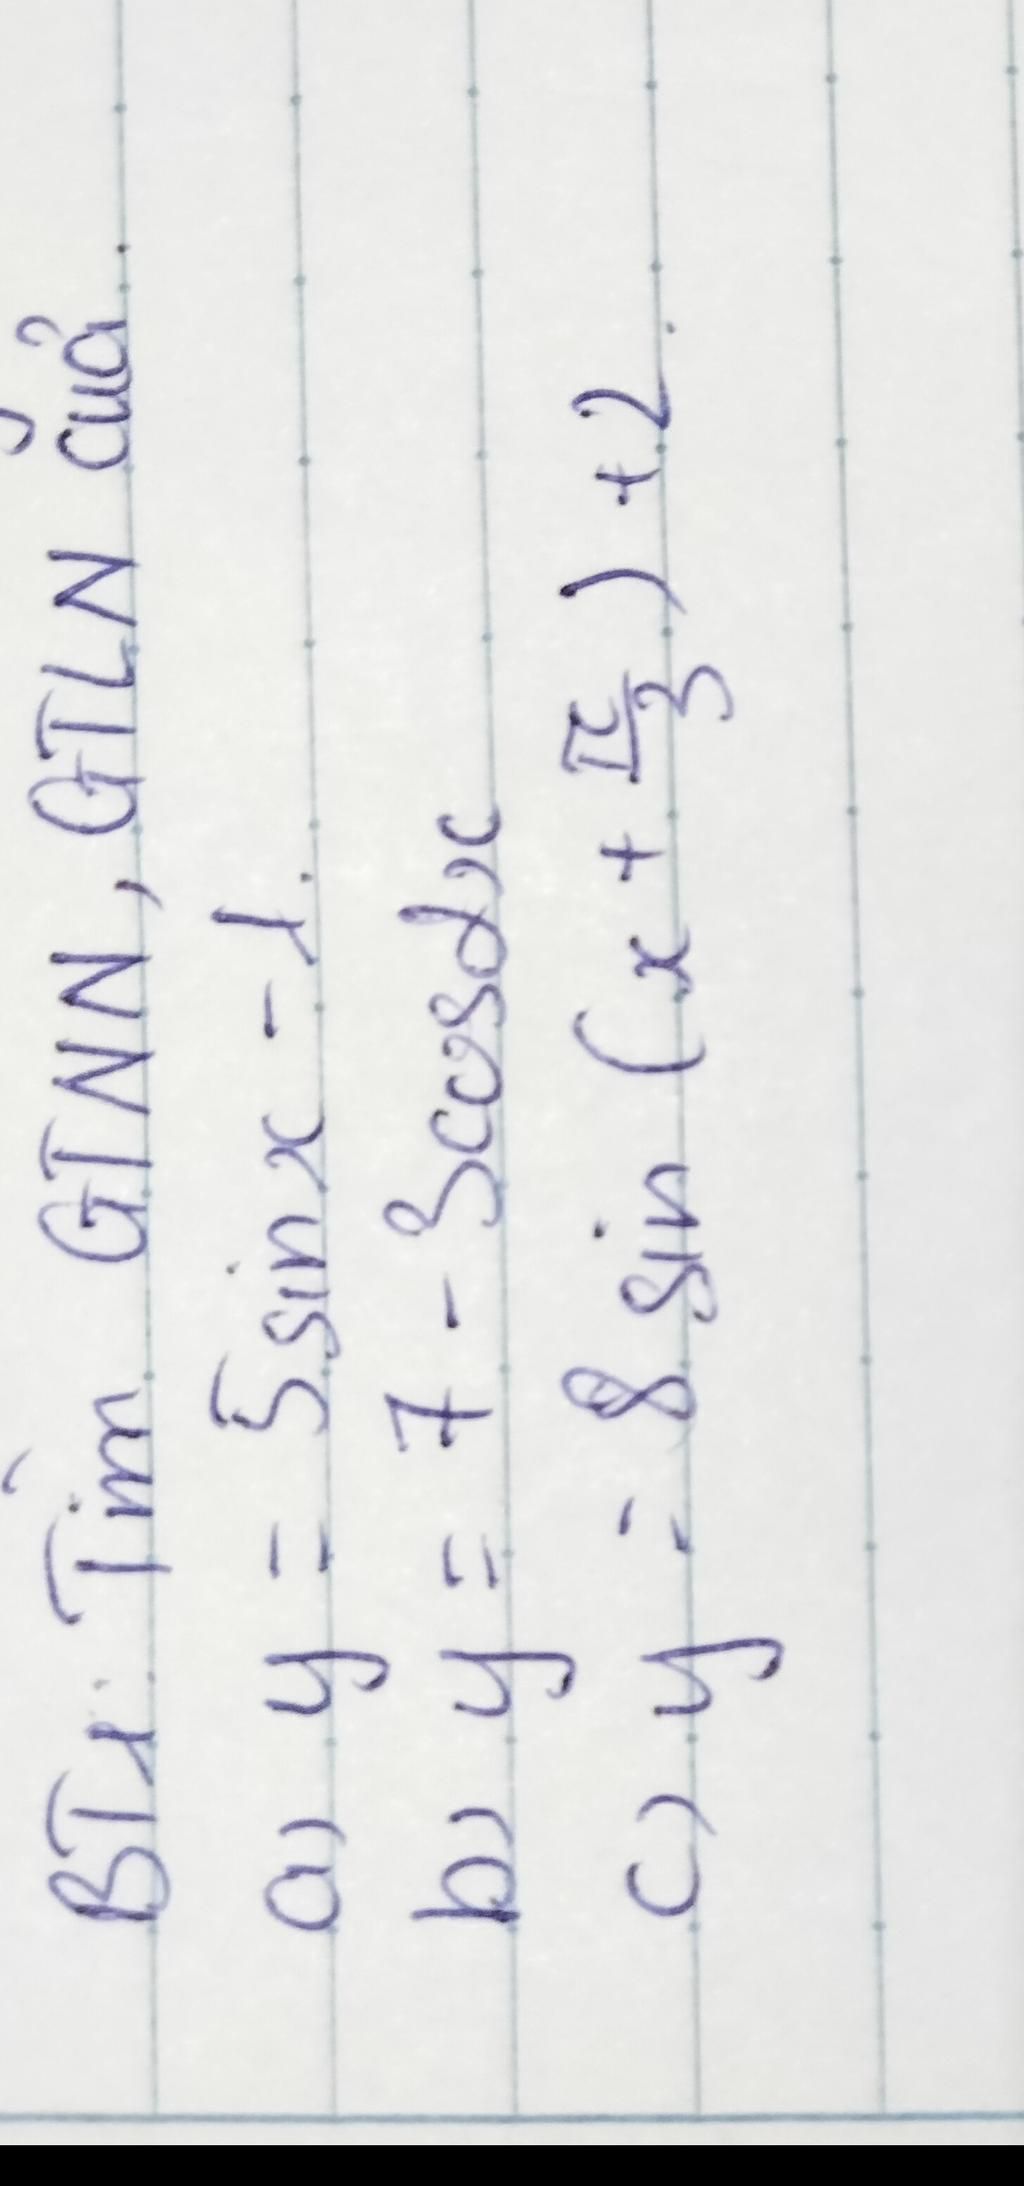 BT1: Tìm GTNN, GTLN của.
a) y = 5sinx - 1.
b) y = 7 - 3cos2x
c) y = 8 sin (x + π/3) + 2.